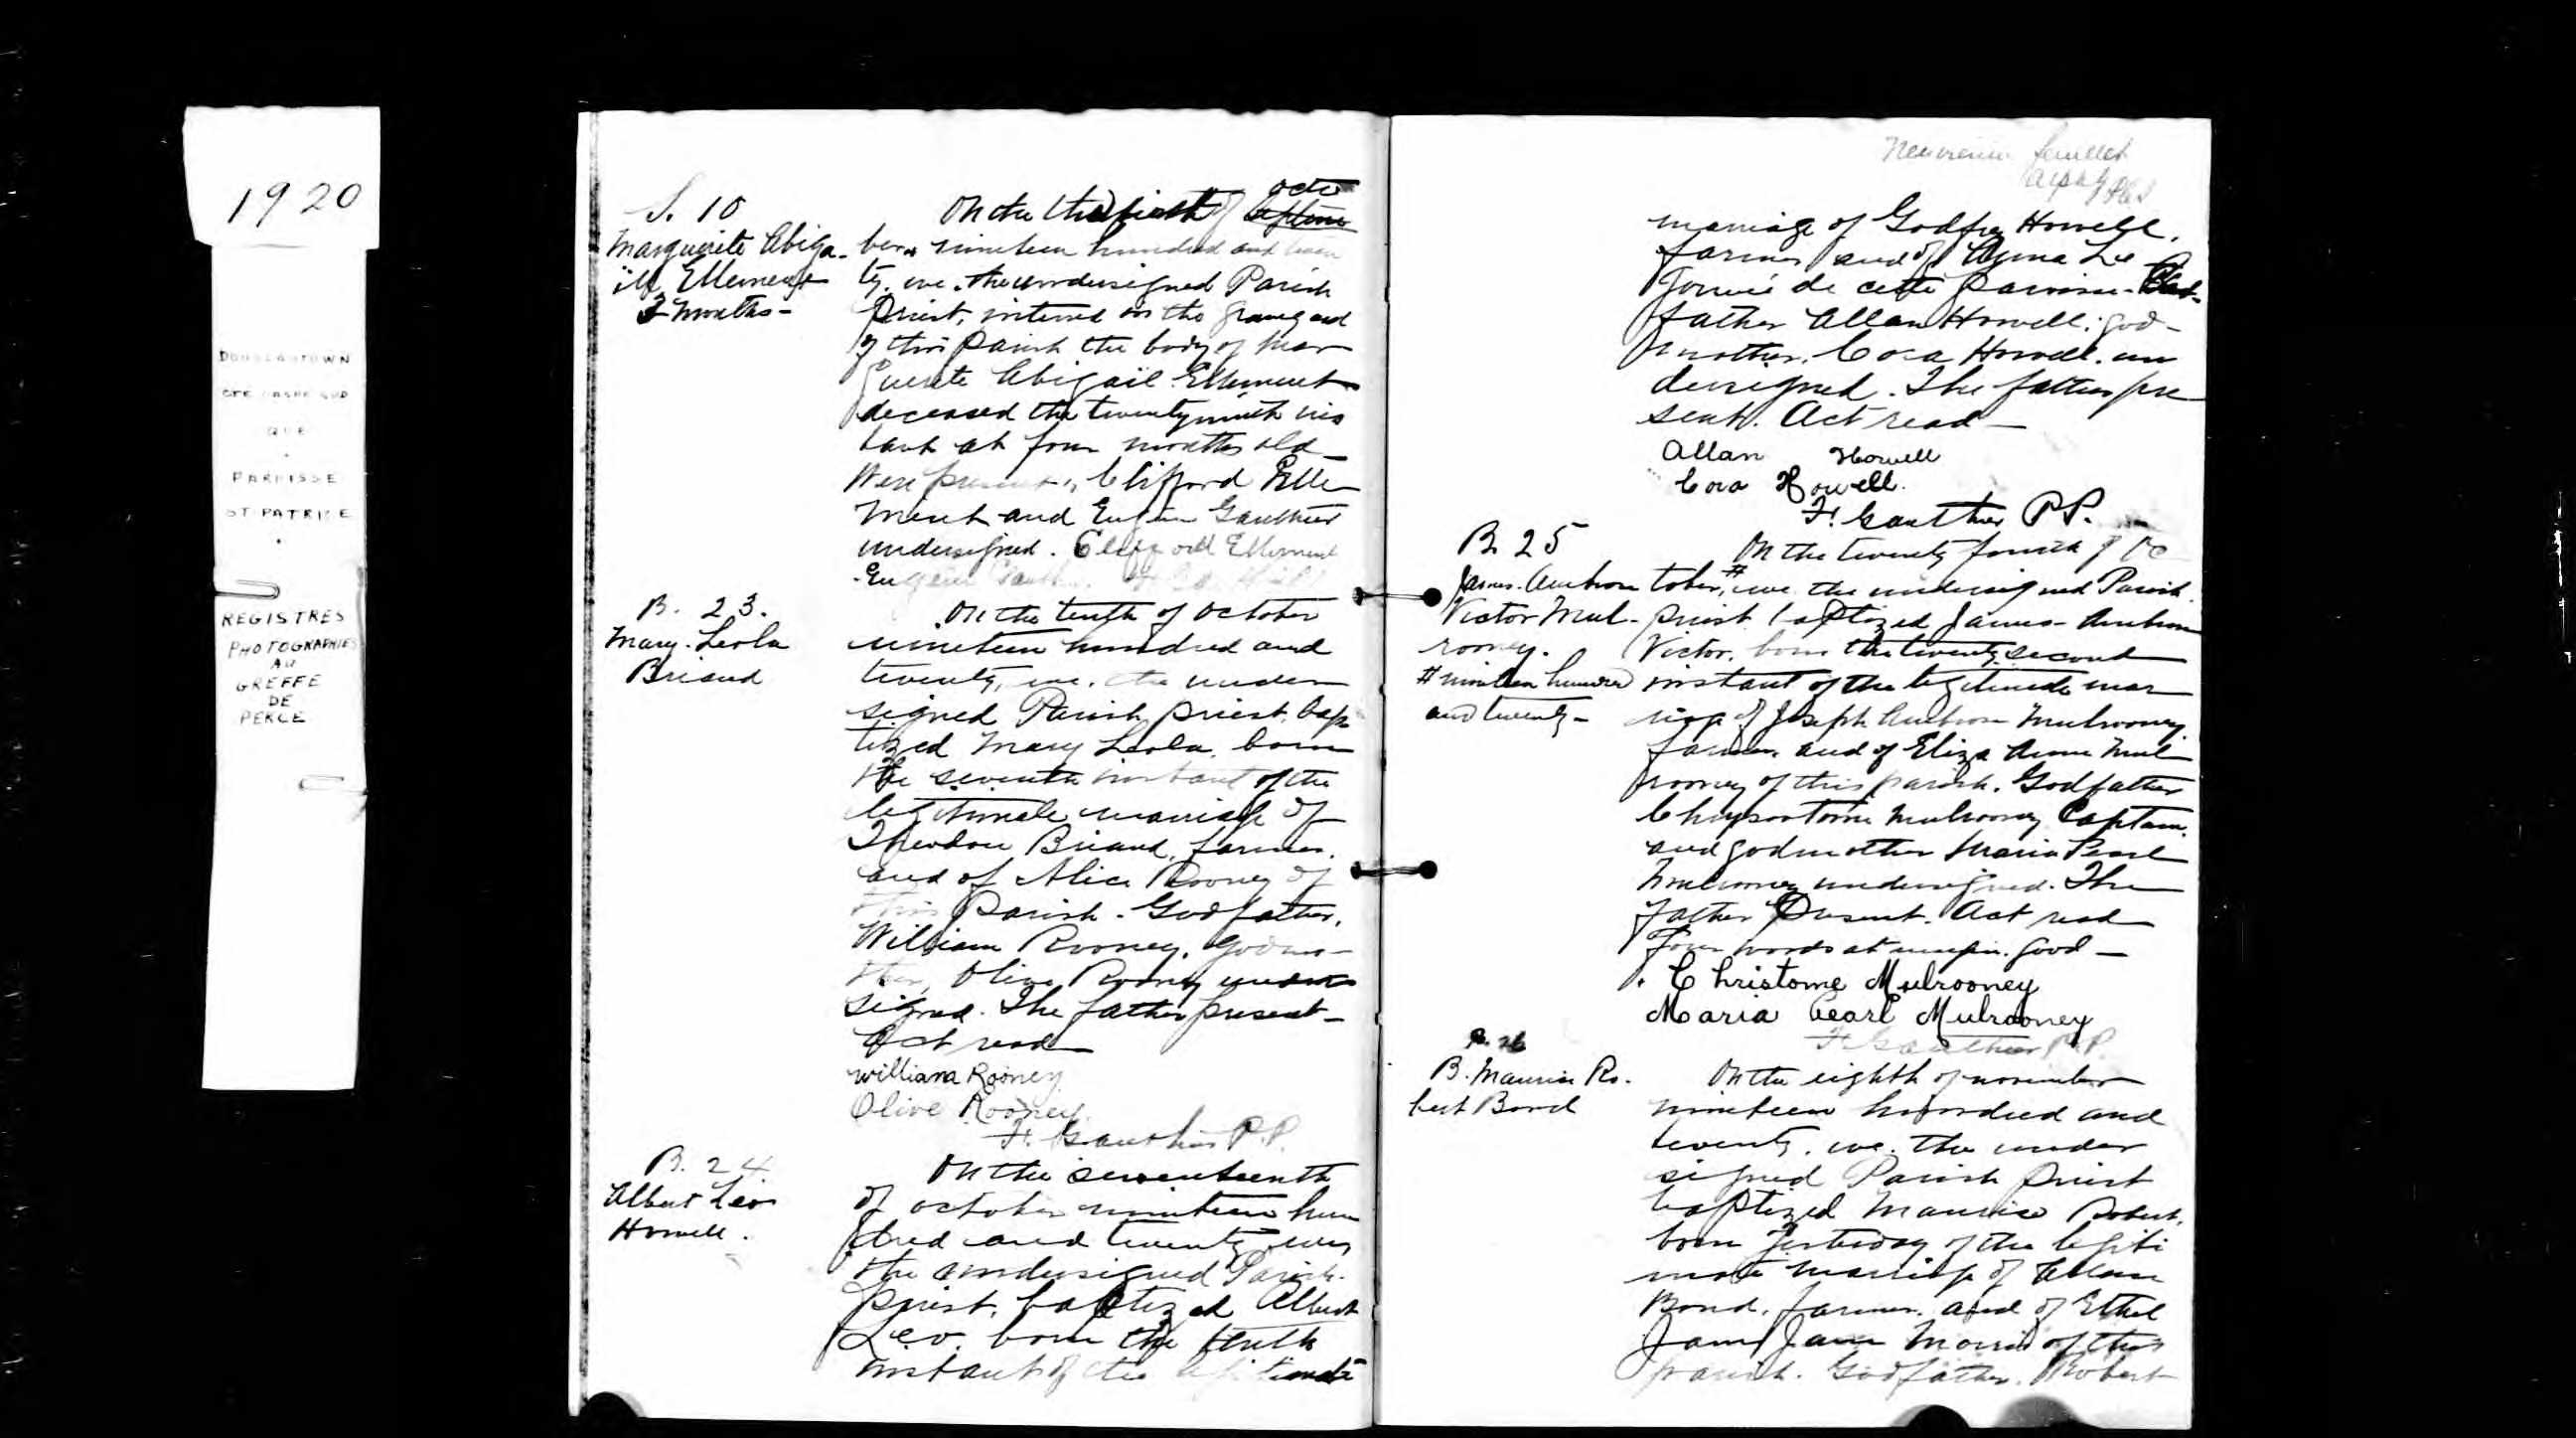 1920
DOUGLASTOWN
CTE GASPE SUD
QUE
PAROISSE
ST-PATRICE
REGISTRES
PHOTOGRAPHIES
AU
GREFFE
DE
PERCE
S. 10
Marguerite Abiga-
ïl Ellement
3 months -
On the first of octo
ber nineteen hundred and twen
ty, we, the undersigned Parish
Priest, interred in the graveyard
of this Parish the body of Mar
guerite Abigaïl Ellement
deceased the twenty ninth ins
tant at four months old -
Were present, Clifford Elle
ment and Eugene Gauthier
undersigned. Clifford Ellement
Eugene
B. 23.
Mary-Leola
Briand
On the tenth of October
nineteen hundred and
twenty, we, the under
signed Parish priest, bap
tized Mary Leola, born
the seventh instant of the
legitimate marriage of
Theodore Briand, farmer,
and of Alice Rooney of
this Parish - Godfather,
William Rooney, godmo-
ther, Olive Rooney under
signed. The father present -
Act read
William Rooney
Olive Rooney.
F. Gauthier P.P.
B. 24
Albert Leo
Howell.
On the seventeenth
of october nineteen hun
dred and twenty we,
the undersigned Parish
priest, baptized Albert
Leo, born the tenth
instant of the legitimate
feuillet
marriage of Godfrey Howell,
farmer and of Le
de cette Paroisse -
father Allan Howell; god-
mother, Cora Howell, un
dersigned. The father pre
sent. Act read -
Allan Howell
Cora Howell.
F. Gauthier P.P.
B. 25
James-Ambrose
Victor Mul-
rooney.
# nineteen hundred
and twenty -
On the twenty fourth of Oc
tober,# we the undersigned Parish
priest baptized James-Ambrose
Victor, born the twenty second
instant of the legitimate mar
riage of Joseph Ambrose Mulrooney,
farmer, and of Eliza Anne Mul
rooney of this parish. Godfather
Chrysostome Mulrooney Captain,
and godmother Maria Pearl
Mulrooney undersigned. The
father Present. Act read
Four words at margin good -
Christome Mulrooney
Maria Pearl Mulrooney
F. Gauthier P.P.
B. 26
B. Maurice Ro-
bert Bond
On the eighth of november
nineteen hundred and
twenty, we, the under
signed Parish priest
baptized Maurice Robert,
born yesterday of the legiti
mate marriage of Allan
Bond, farmer, and of Ethel
Jane Morris of this
parish. Godfather, Robert